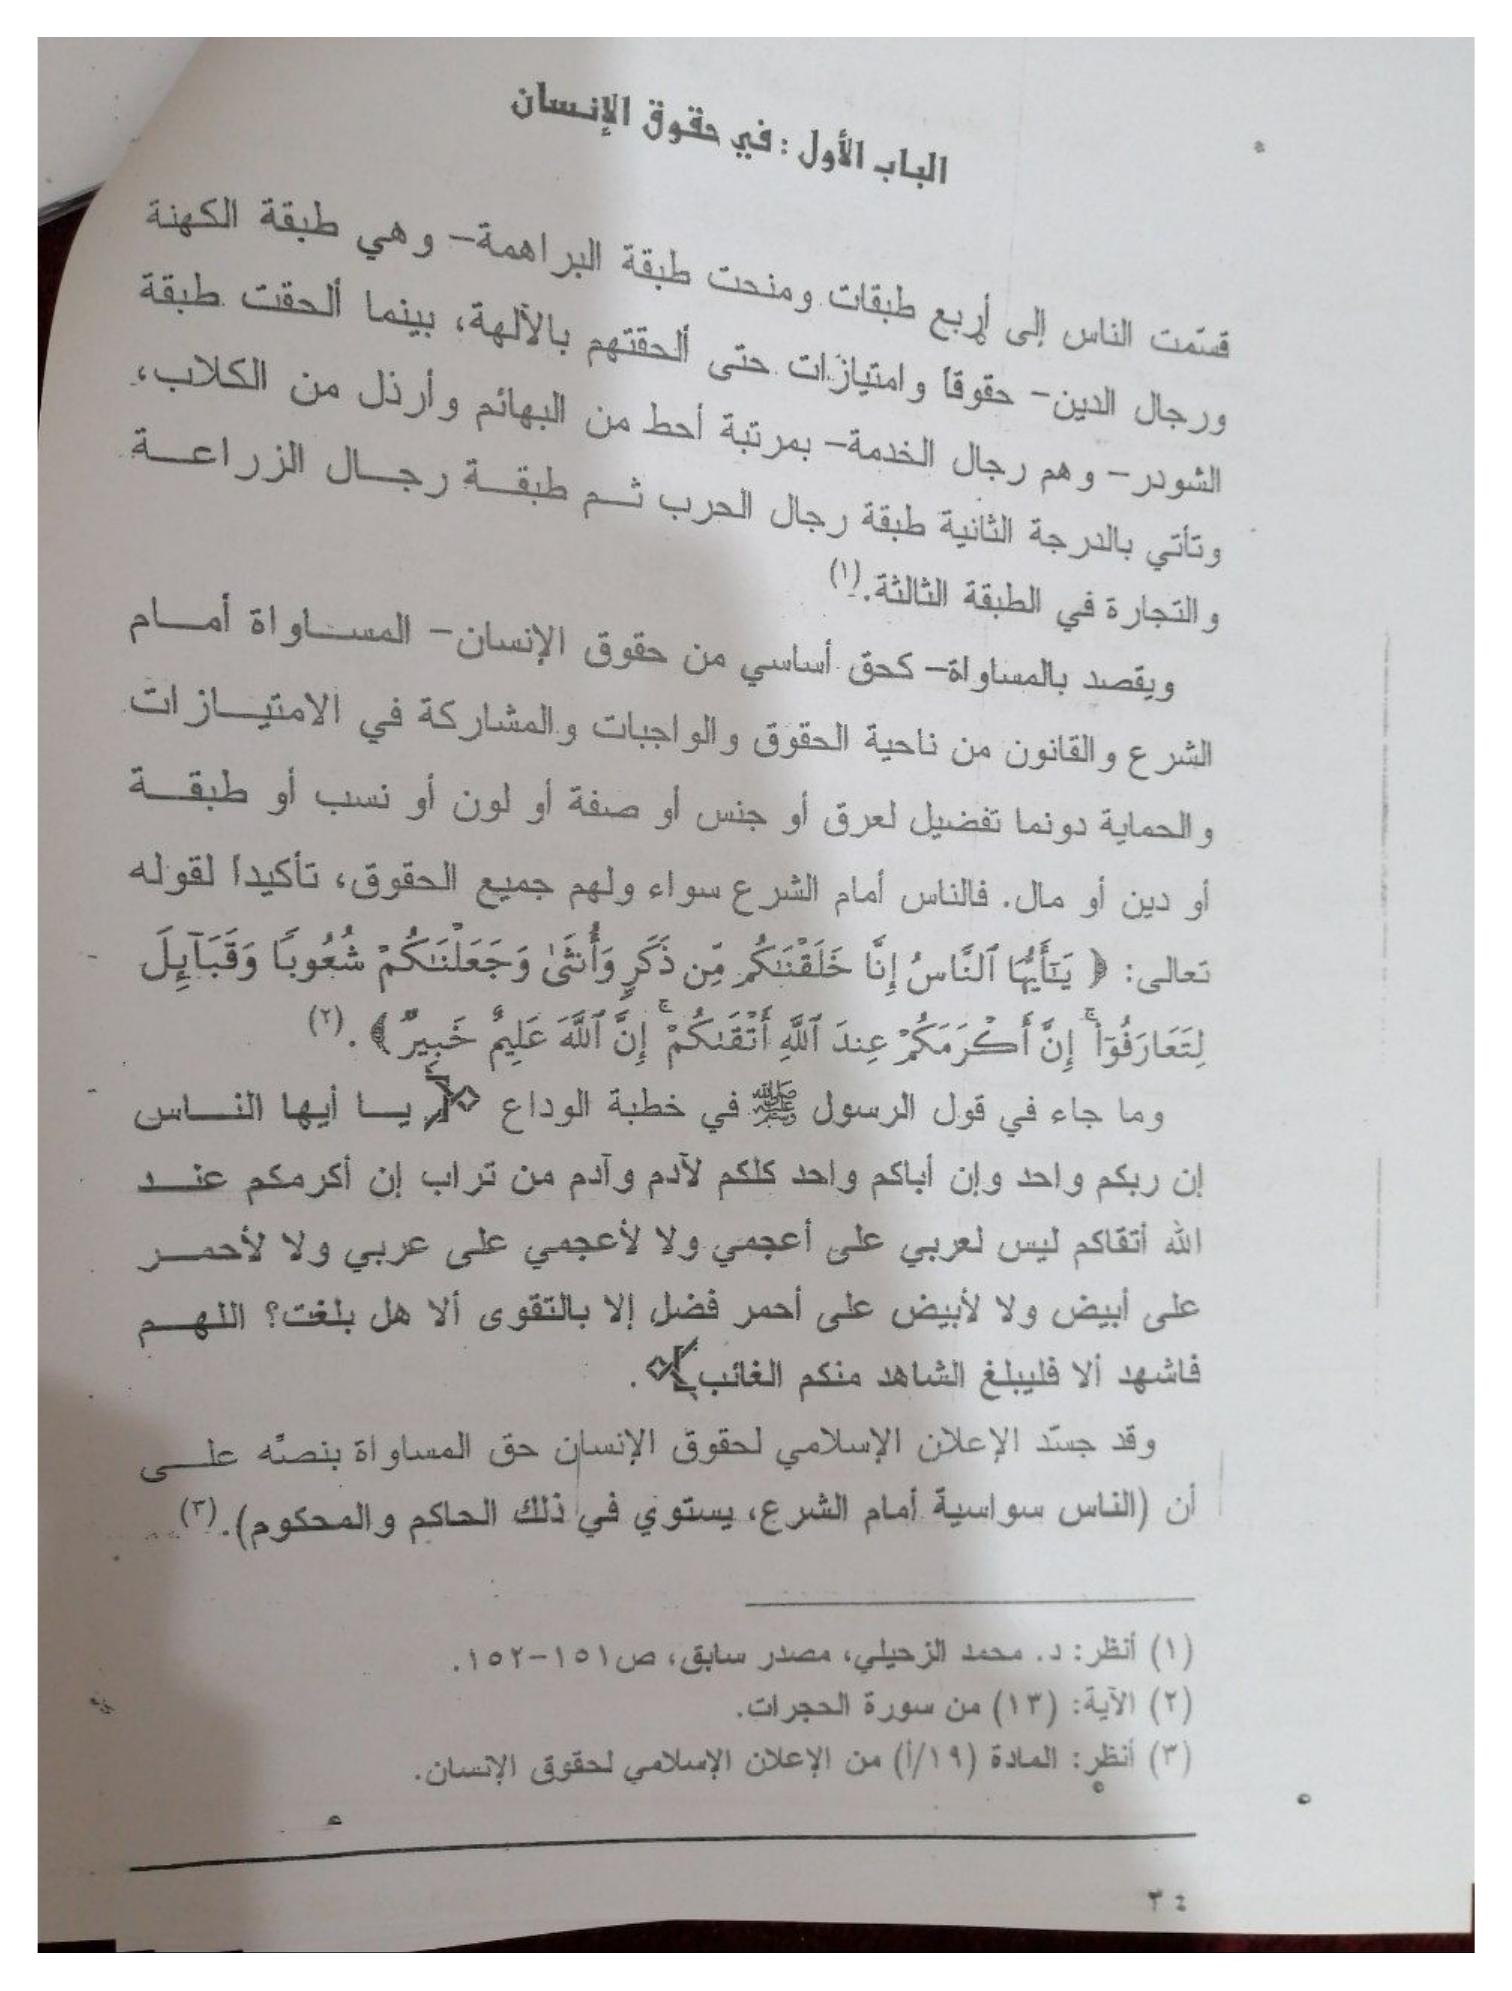 الباب الأول : في حقوق الإنسان
قسّمت الناس إلى أربع طبقات ومنحت طبقة البراهمة– وهي طبقة الكهنة
ورجال الدين– حقوقاً وامتيازات حتى ألحقتهم بالآلهة، بينما ألحقت طبقة
الشودر– وهم رجال الخدمة– بمرتبة أحط من البهائم وأرذل من الكلاب،
وتأتي بالدرجة الثانية طبقة رجال الحرب ثم طبقة رجال الزراعة
والتجارة في الطبقة الثالثة.(١)
ويقصد بالمساواة– كحق أساسي من حقوق الإنسان– المساواة أمام
الشرع والقانون من ناحية الحقوق والواجبات والمشاركة في الامتيازات
والحماية دونما تفضيل لعرق أو جنس أو صفة أو لون أو نسب أو طبقة
أو دين أو مال. فالناس أمام الشرع سواء ولهم جميع الحقوق، تأكيداً لقوله
تعالى: ﴿ يَٰٓأَيُّهَا ٱلنَّاسُ إِنَّا خَلَقْنَٰكُم مِّن ذَكَرٍ وَأُنثَىٰ وَجَعَلْنَٰكُمْ شُعُوبًا وَقَبَآئِلَ
لِتَعَارَفُوٓا۟ ۚ إِنَّ أَكْرَمَكُمْ عِندَ ٱللَّهِ أَتْقَىٰكُمْ ۚ إِنَّ ٱللَّهَ عَلِيمٌ خَبِيرٌ ﴾ .(٢)
وما جاء في قول الرسول ﷺ في خطبة الوداع ﴿ يا أيها الناس
إن ربكم واحد وإن أباكم واحد كلكم لآدم وآدم من تراب إن أكرمكم عند
الله أتقاكم ليس لعربي على أعجمي ولا لأعجمي على عربي ولا لأحمر
على أبيض ولا لأبيض على أحمر فضل إلا بالتقوى ألا هل بلغت؟ اللهم
فاشهد ألا فليبلغ الشاهد منكم الغائب﴾ .
وقد جسّد الإعلان الإسلامي لحقوق الإنسان حق المساواة بنصّه على
أن (الناس سواسية أمام الشرع، يستوي في ذلك الحاكم والمحكوم).(٣)
(١) أنظر: د. محمد الزحيلي، مصدر سابق، ص١٥١–١٥٢.
(٢) الآية: (١٣) من سورة الحجرات.
(٣) أنظر: المادة (١٩/أ) من الإعلان الإسلامي لحقوق الإنسان.
٣٤